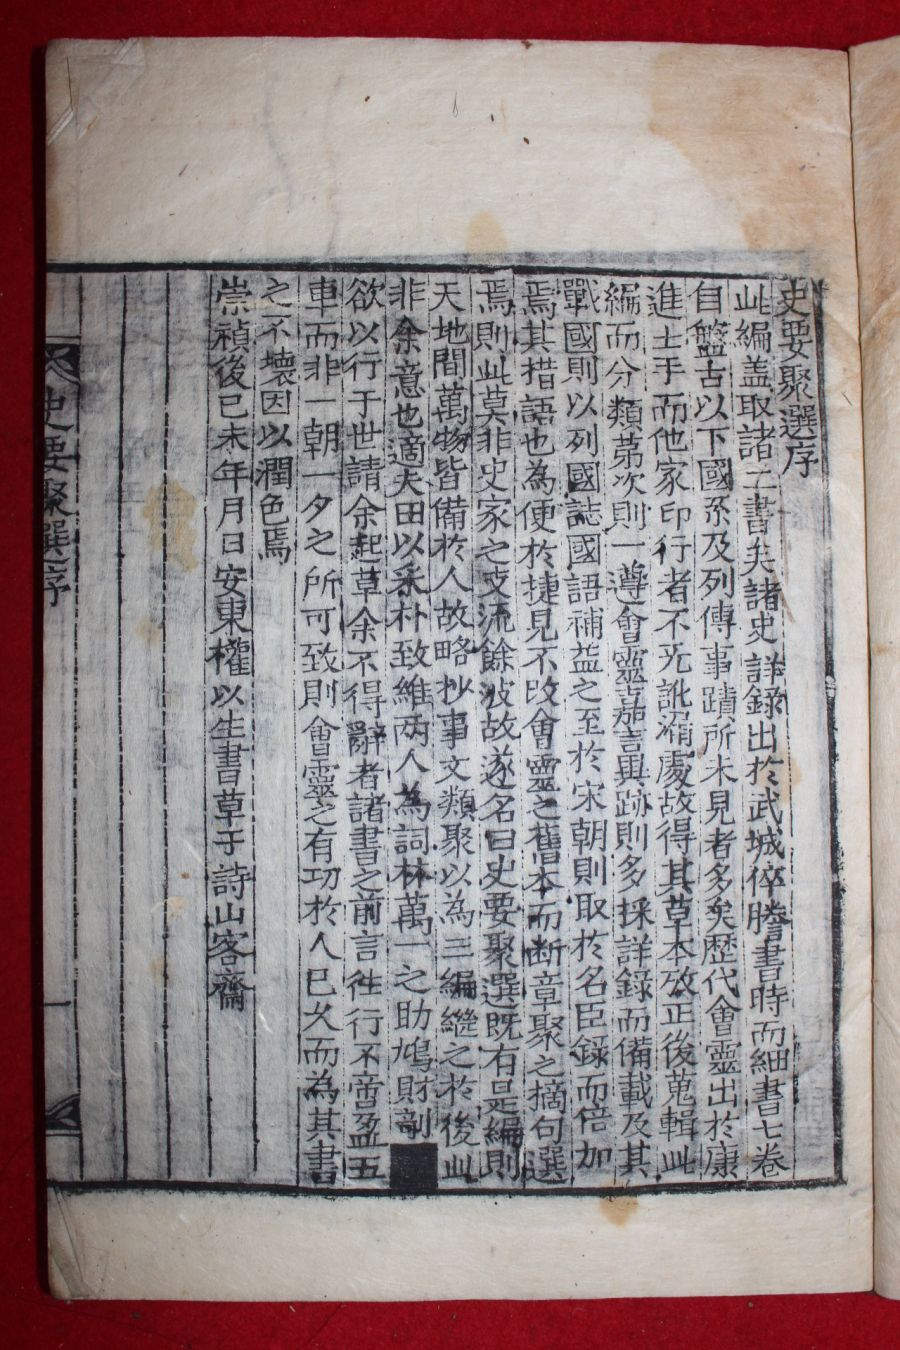 史要聚選序
此編盖取諸二書矣諸史詳錄出於武城倅謄書時而細書七卷
自盤古以下國系及列傳事蹟所未見者多矣歷代會靈出於康
進士手而他家印行者不旡訛漏處故得其草本攷正後蒐輯此
編而分類第次則一遵會靈嘉言異跡則多採詳錄而備載及其
戰國則以列國誌國語補益之至於宋朝則取於名臣錄而倍加
焉其措語也為便於捷見不改會靈之舊本而断章聚之摘句選
焉則此莫非史家之支流餘波故遂名曰史要聚選既有是編則
天地間萬物皆備於人故略抄事文類聚以為三編継之於後此
非余意也適夫田以采朴致維兩人為詞林萬一之助鳩財剞
欲以行于世請余起草余不得辭者諸書之前言徃行不啻盈五
車而非一朝一夕之所可致則會靈之有功於人已久而為其書
之不壞因以潤色焉
崇禎後己未年月日安東權以生書草于詩山客齋
史要聚選序
一